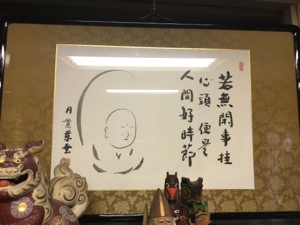 若無閑事挂
心頭 便是
人間好時節